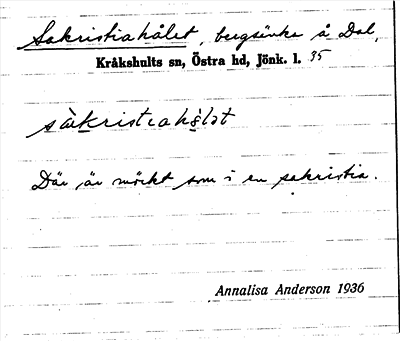 Sakristiahålet, bergsänka å Dal,
Kråkshults sn, Östra hd, Jönk. l. 35
sàkristiahå̀lət
Där är mörkt som i en sakristia.
Annalisa Anderson 1936